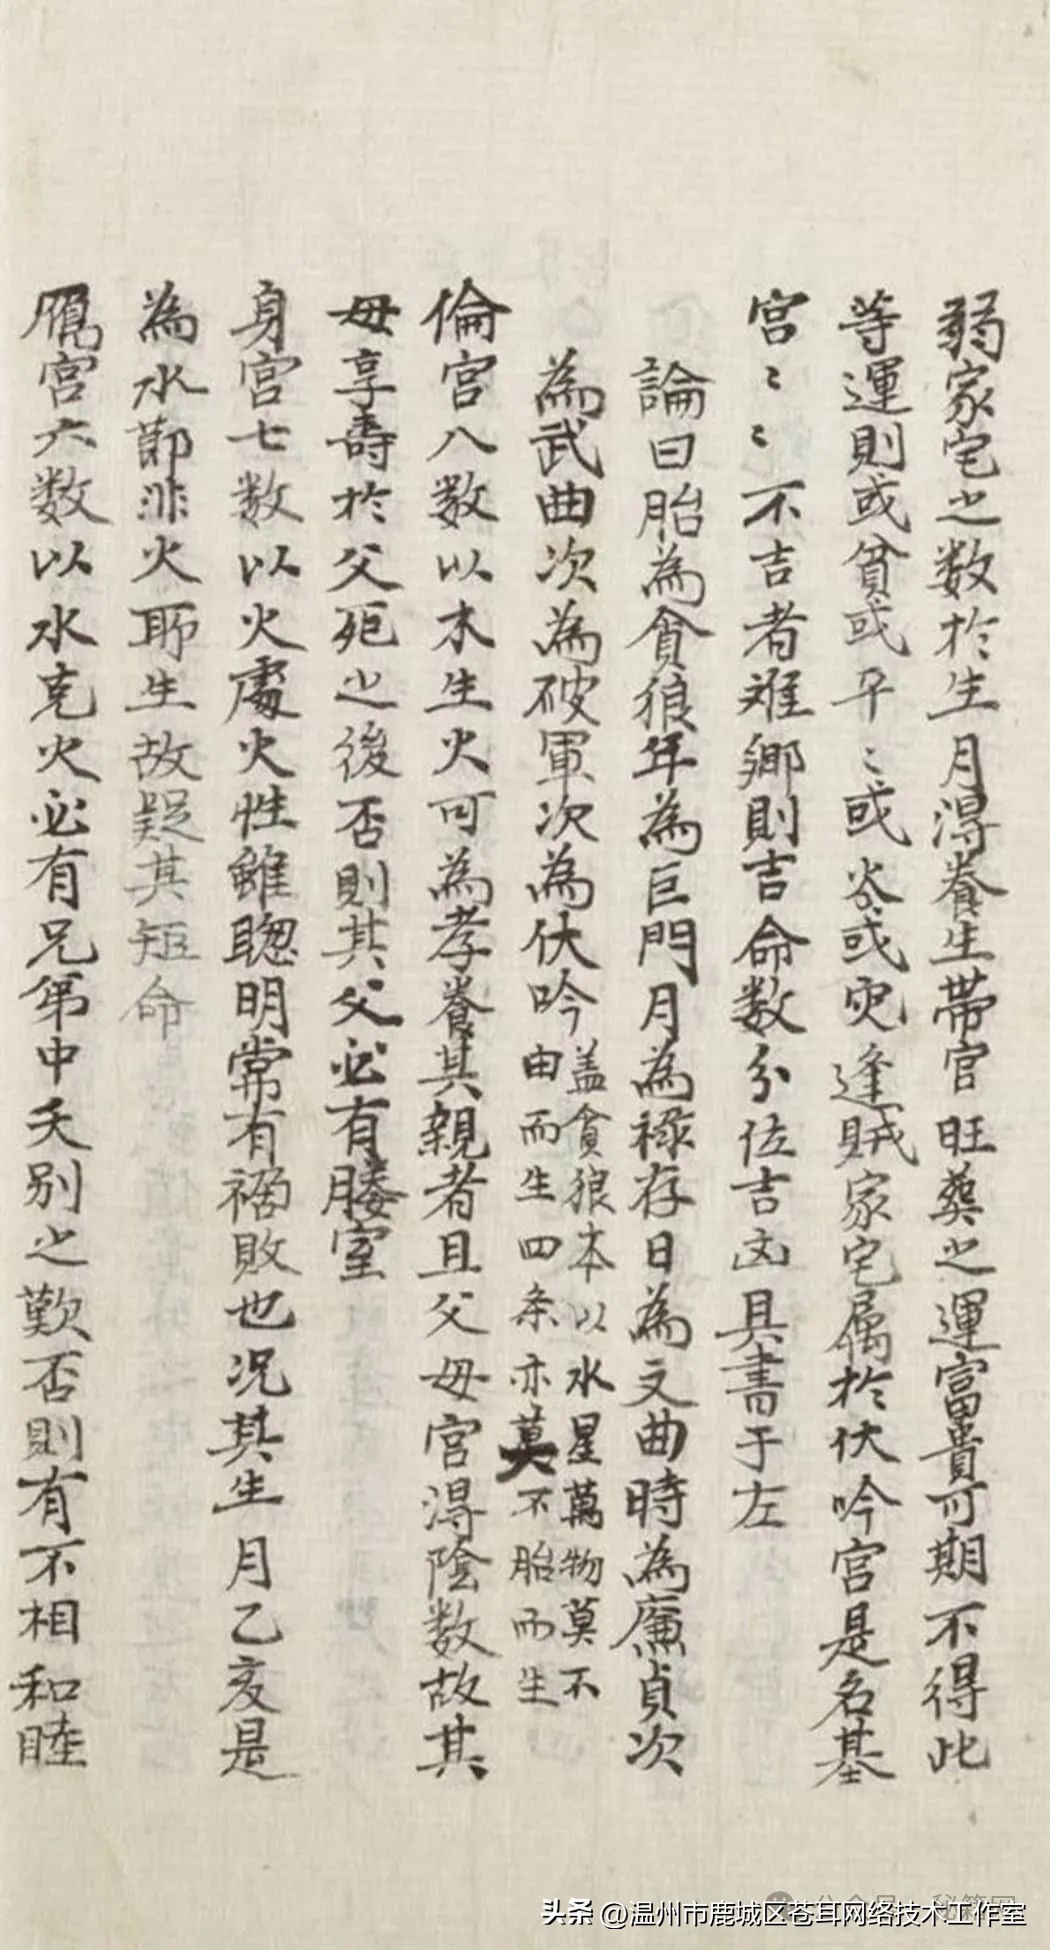 弱家宅之数於生月淂養生带官旺葬之運富貴可期不得此
等運則或貧或平〻或災或㓙逢賊家宅属於伏吟宫是名基
宫〻〻不吉者难郷則吉命数分佐吉凶具書于左
論曰胎為貪狼年為巨門月為禄存日為文曲時為廉貞次
為武曲次為破軍次為伏吟盖貪狼本以水星萬物莫不
由而生四条亦莫不胎而生
倫宫八数以木生火可為孝養其親者且父母宫淂陰数故其
母享壽於父死之後否則其父必有媵室
身宫七数以火處火性雖聰明常有禍敗也况其生月乙亥是
為水莭非火聊生故疑其短命
鴈宫六数以水克火必有兄弟中夭别之歎否則有不相和睦
头条 @温州市鹿城区苍耳网络技术工作室